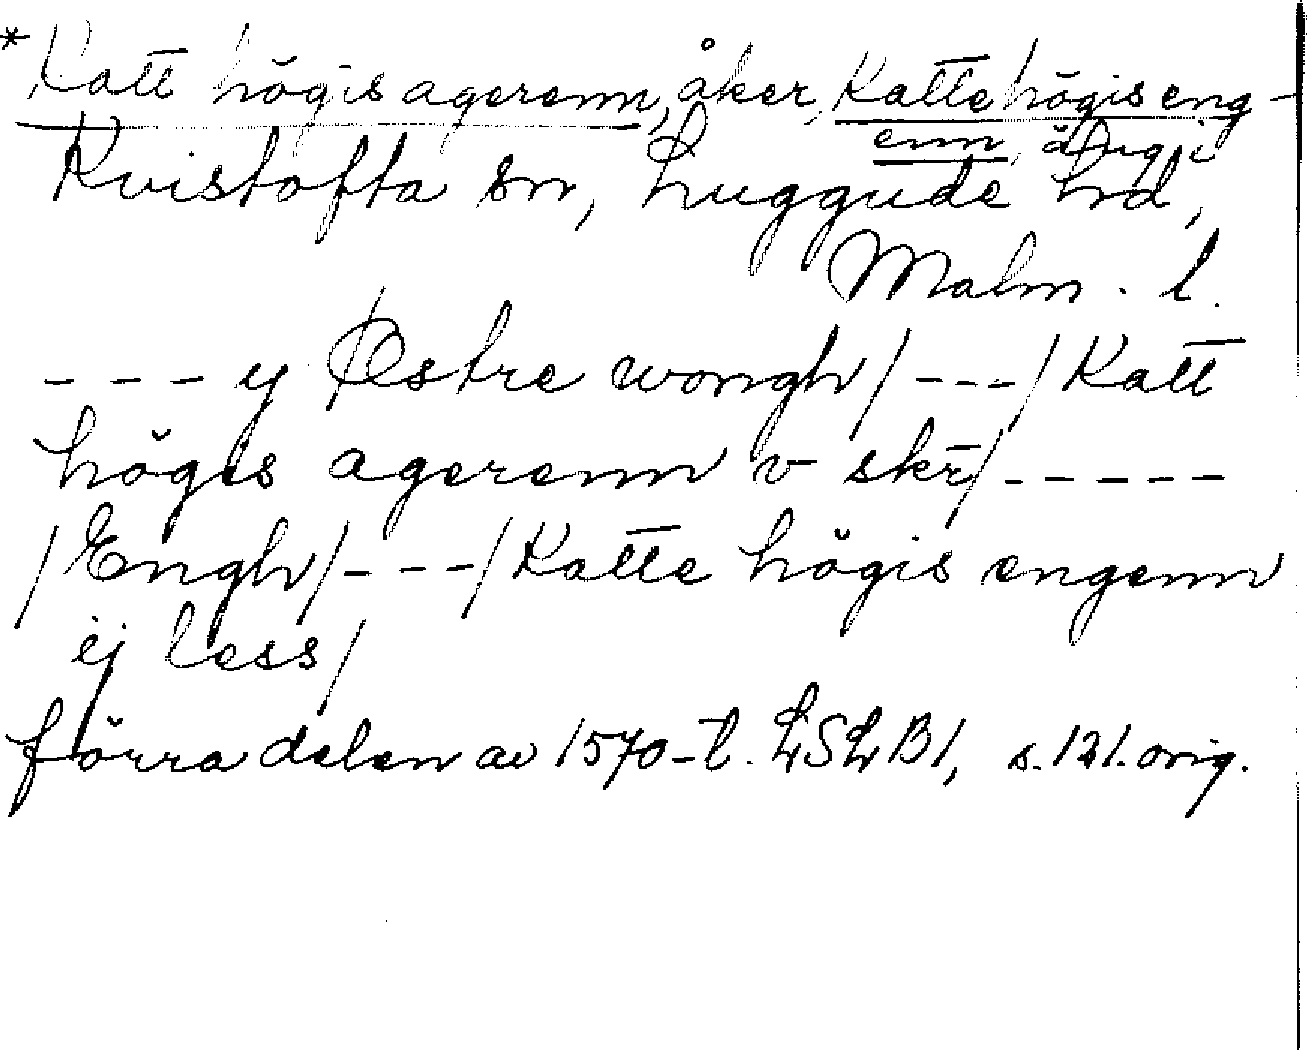 *Katt högis agerenn, åker, Katte högis eng-
enn, äng, i
Kvistofta sn, Luggude hd,
Malm. l.
- - - y Østre wongh/ - - - / Katt
högis agerenn v skr̄/ - - - - -
/Engh/ - - - /Katte högis engenn
ij less/
förra delen av 1570-t. LSLB1, s. 121. orig.